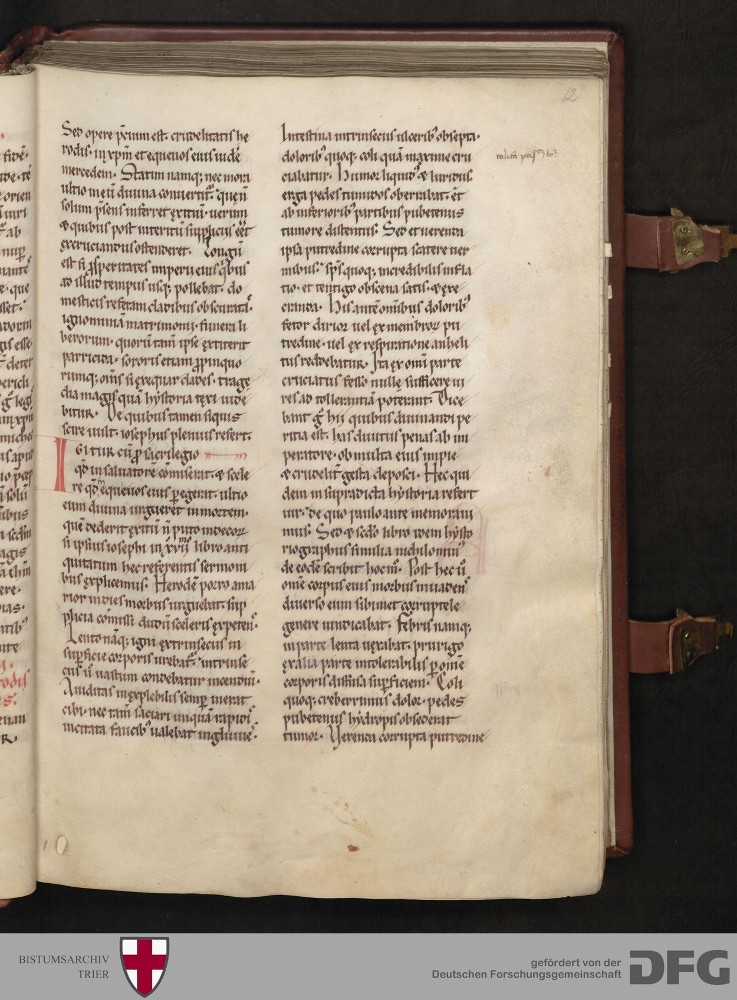 12
Sed opere p̄cium est. crudelitatis he
rodis. in xp̄m et equeuos eius uidē
mercedem. Statim namq; nec mora
ultio in eū diuina conuertit̄. que n̄
solum p̄sens inferret exitiū. uerum
& quibus post interitū suppliciis eēt
excruciandus ostenderet. Longū
est si p̄speritates imperii eius q̄bus
ad illud tempus usq; pollebat. do
mesticis referam cladibus obscuratas.
ignominiā matrimonii. funera li
berorum. quorū tam̄ ipse extiterit
parricida. sororis etiam p̄pinquo
rumq; om̄s si exequar clades. trage
dia magis quā hystoria texi uide
bitur. De quibus tamen siquis
scire uult. iosephus plenius refert.
IGITUR cū p̄ sacrilegio
qd̄ in saluatorē comiserat. & scele
re qd̄ in equeuos eius pegerat. ultio
eum diuina urgueret in mortem.
quē dederit exitū n̄ puto indecor̄
si ipsius iosephi in xviimo libro anti
quitatum hec referentis sermoni
bus explicemus. Herodē porro ama
rior in dies morbus urguebat. sup
plicia comissi dudū sceleris expetens.
Lento namq; igni extrinsecus in
superficie corporis urebat̄. intrinse
cus ū uastum condebatur incendiū.
Auiditas inexplebilis semp inerat
cibi. nec tam̄ saciari unquā rapidis
incitata faucib; ualebat ingluuies.
Intestina intrinsecus ulcerib; obsepta.
dolorib; quoq; coli quā maxime cru
ciabatur. Humor liquid' & luridus
erga pedes tumidos oberrabat. ēt
ab inferiorib; partibus pubetenus
tumore distentus. Sed et uerenda
ipsa putredine corrupta scatere uer
mibus. sp̄s quoq; incredibilis infla
tio. et tentigo obscena satis. & exe
cranda. His autē om̄ibus dolorib;
fetor durior uel ex membror̄ pu
tredine. uel ex respiratione anheli
tus reddebatur. Ita ex omi parte
cruciatus fesso nulle sufficere ui
res ad tollerantiā poterant. Dice
bant ḡ hii quibus diuinandi pe
ritia est. has diuinitus penas ab im
peratore. ob multa eius impie
& crudelit̄ gesta deposci. Hec qui
dem in supradicta hystoria refert
uir. de quo paulo ante memoraui
mus. Sed & sedō libro idem hysto
riographus similia nichilominus
de eodē scribit hoc m̄. Post hec ū
omē corpus eius morbus inuadens
diuerso eum sibimet corruptele
genere uindicabat. Febris namq;
in parte lenta uexabat. prurigo
ex alia parte intolerabilis p om̄ē
corporis diffusa superficiem. Coli
quoq; creberrimus dolor. pedes
pubetenus hydropis obsederat
tumor. Verenda corrupta putredine
BISTUMSARCHIV
TRIER
gefördert von der
Deutschen Forschungsgemeinschaft
DFG